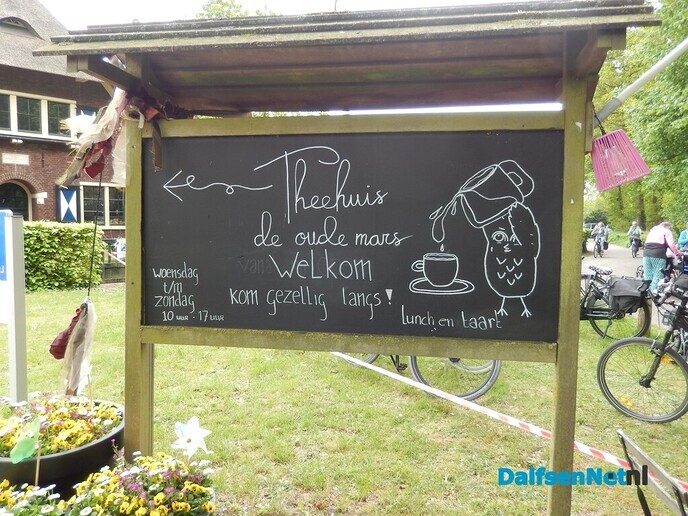 Theehuis
de oude mars
WELKOM
kom gezellig langs!
woensdag
t/m
zondag
10 uur - 17 uur
Lunch en taart
DalfsenNet.nl